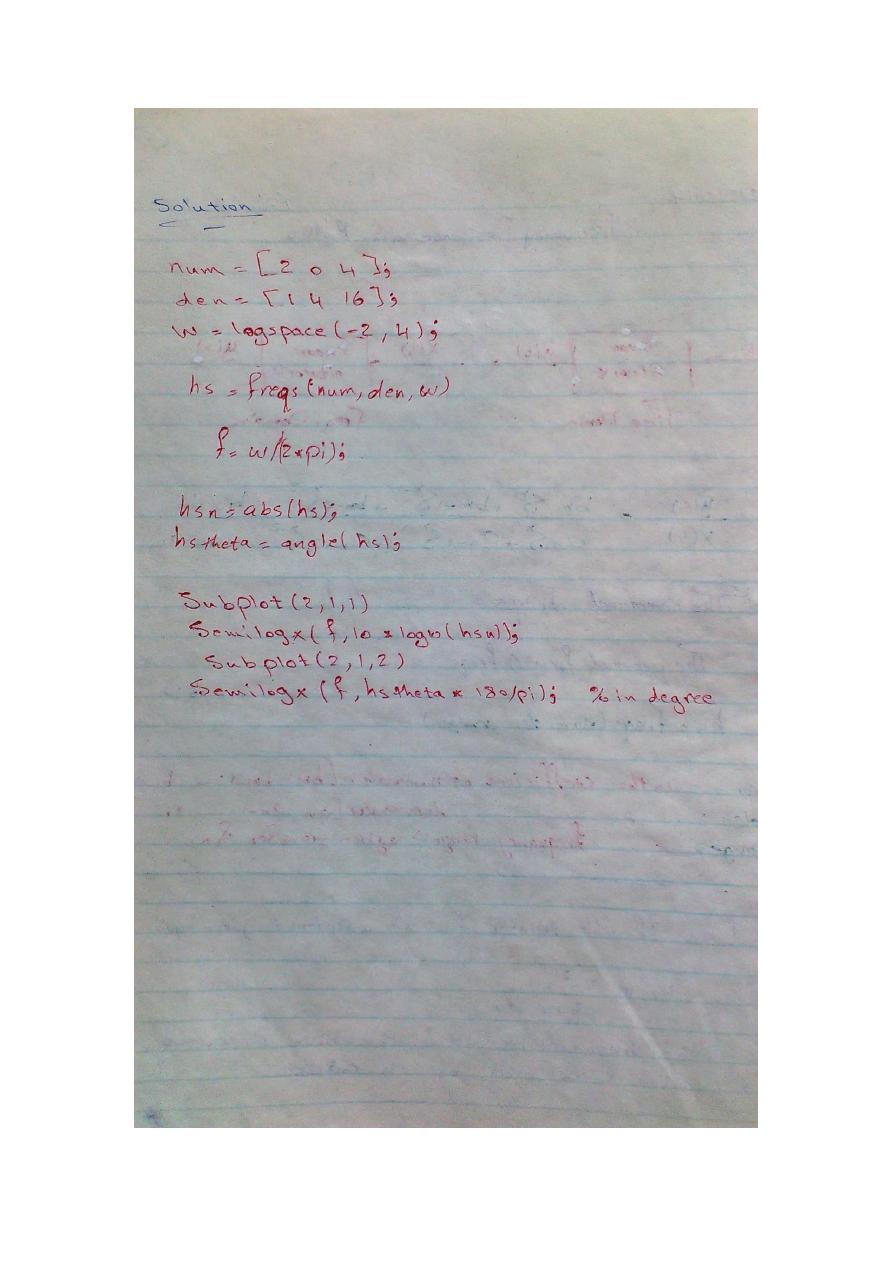 Solution
num = [2 0 4];
den = [1 4 16];
w = logspace(-2, 4);
hs = freqs(num, den, w)
f = w/(2*pi);
hsn = abs(hs);
hstheta = angle(hs);
Subplot(2,1,1)
Semilogx(f, 10 * log10(hsn));
Subplot(2,1,2)
Semilogx(f, hstheta * 180/pi); % in degree